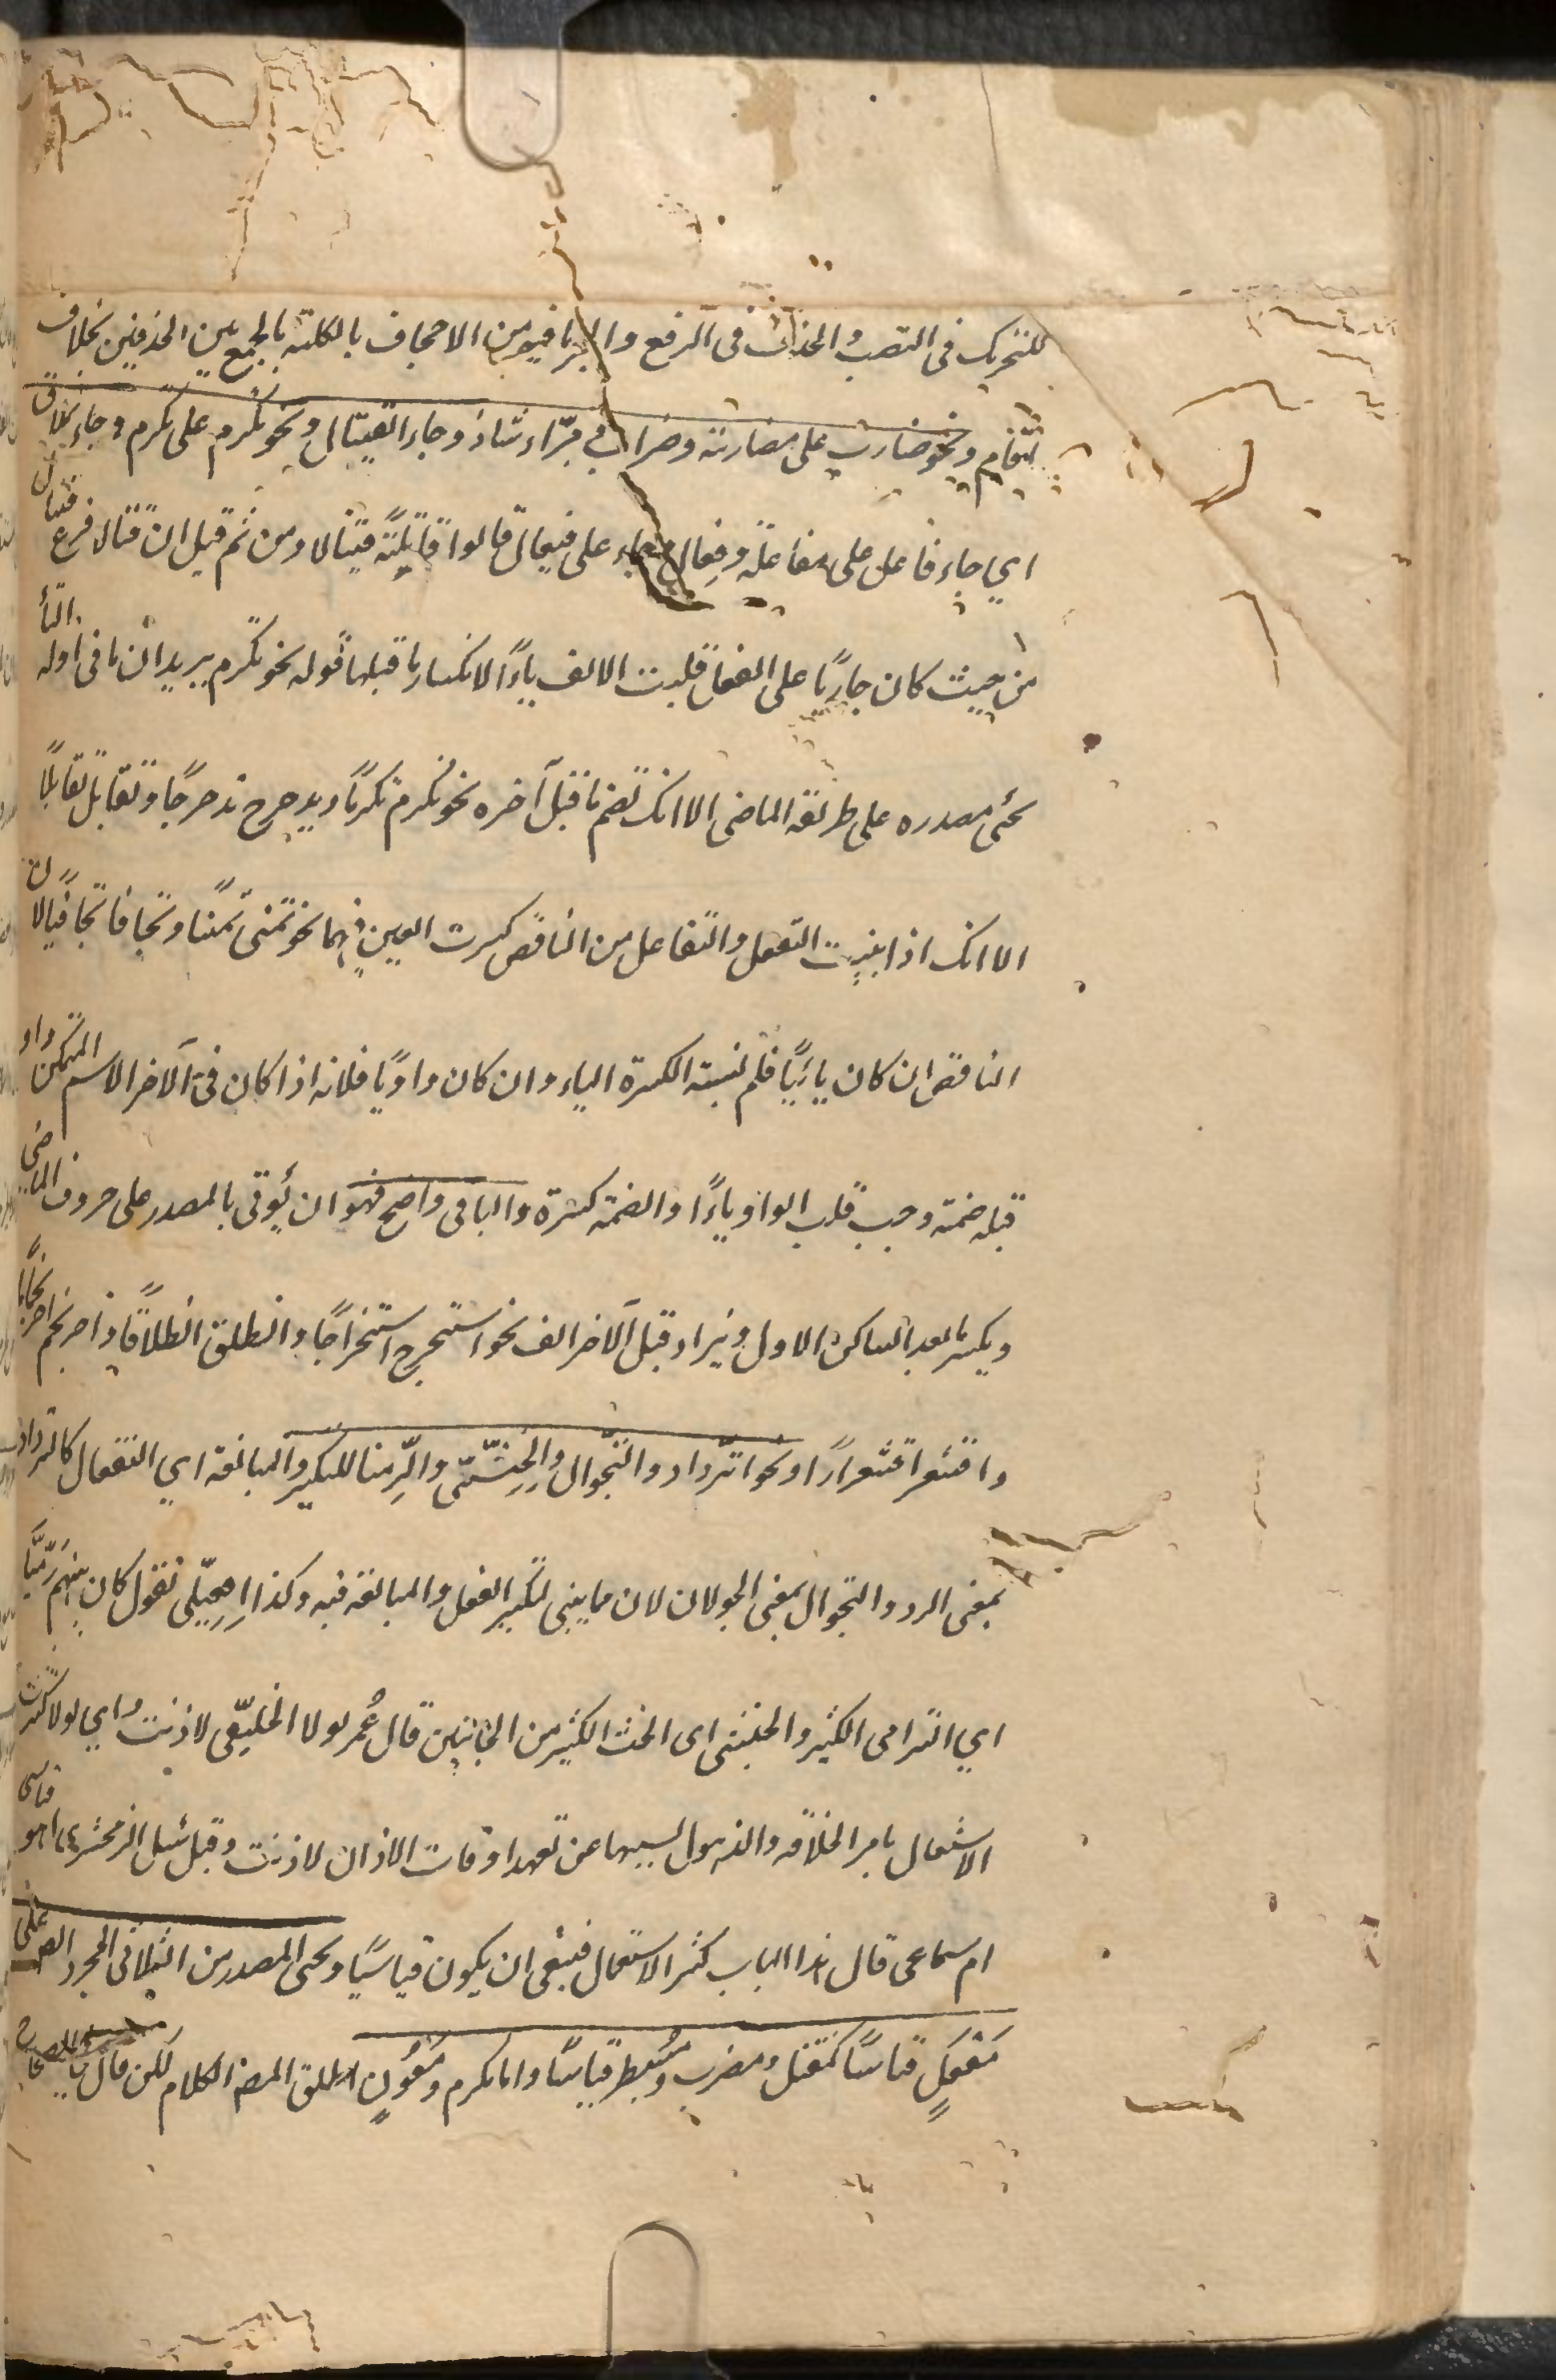 للتحريك فى النصب والحذف فى الرفع والجر ما فيه من الاجحاف بالكلمة بالجمع بين الحذفين بخلاف
اقام ونحو ضارب على مضاربة وضراب ومرّاء شاذ وجاء القيتال ونحو تكرم على تكرم وجاء تملاق
اي جاء فاعل على مفاعلة وفعال وجاء على فيعال قالوا قاتلته قيتالا ومن ثم قيل ان قتالا فرع قيتال
من حيث كان جاريًا على الفعل قلبت الالف ياءً لانكسار ما قبلها قوله نحو تكرم يريد ان ما فى اوله التاء
يجئ مصدره على طريقة الماضى الا انك تضم ما قبل آخره نحو تكرم تكرمًا وتدحرج تدحرجًا وتقابل تقابلًا
الا انك اذا بنيت التفعل والتفاعل من الناقص كسرت العين فيهما نحو تمنى تمنيًا وتجافا تجافيًا لان
الناقص ان كان يائيًا فلم نسبة الكسرة الياء وان كان واويًا فلانه اذا كان فى آلاخر الاسم المتمكن واو
قبله ضمة وجب قلب الواو ياءً والضمة كسرة والباقى واضح فهو ان يُؤتى بالمصدر على حروف الماضى
ويكسر ما بعد الساكن الاول ويزاد قبل آلاخر الف نحو استخرج استخراجًا وانطلق انطلاقًا واحرنجم احرنجامًا
واقشعر اقشعرارًا ونحو التّرداد والتّجوال والحِثّيثى والرِّميا للتكثير والمبالغة اي التفعال كالترداد
بمعنى الرد والتجوال بمعنى الجولان لان مما يبنى لتكثير الفعل والمبالغة فيه وكذا الفعيّلى تقول كان بينهم رمّيّا
اي الترامى الكثير والحثيثى اى الحث الكثير من الجانبين قال عُمر لولا الخليّفى لاذنت اي لولا كثرت
الاشتغال بامر الخلافه والذهول بسببها عن تعهد اوقات الاذان لاذنت وقيل سئل الزمخشرى اهو قياسى
ام سماعى قال هذا الباب كثر الاستعمال فينبغى ان يكون قياسيًا ويجى المصدر من الثلاثى المجرد ايضا على
مَفعَلٍ قياسًا كمَقتل ومضرب ومشرب قياسًا واما مكرم ومَعُونٍ اطلق المصنف الكلام لكن قال